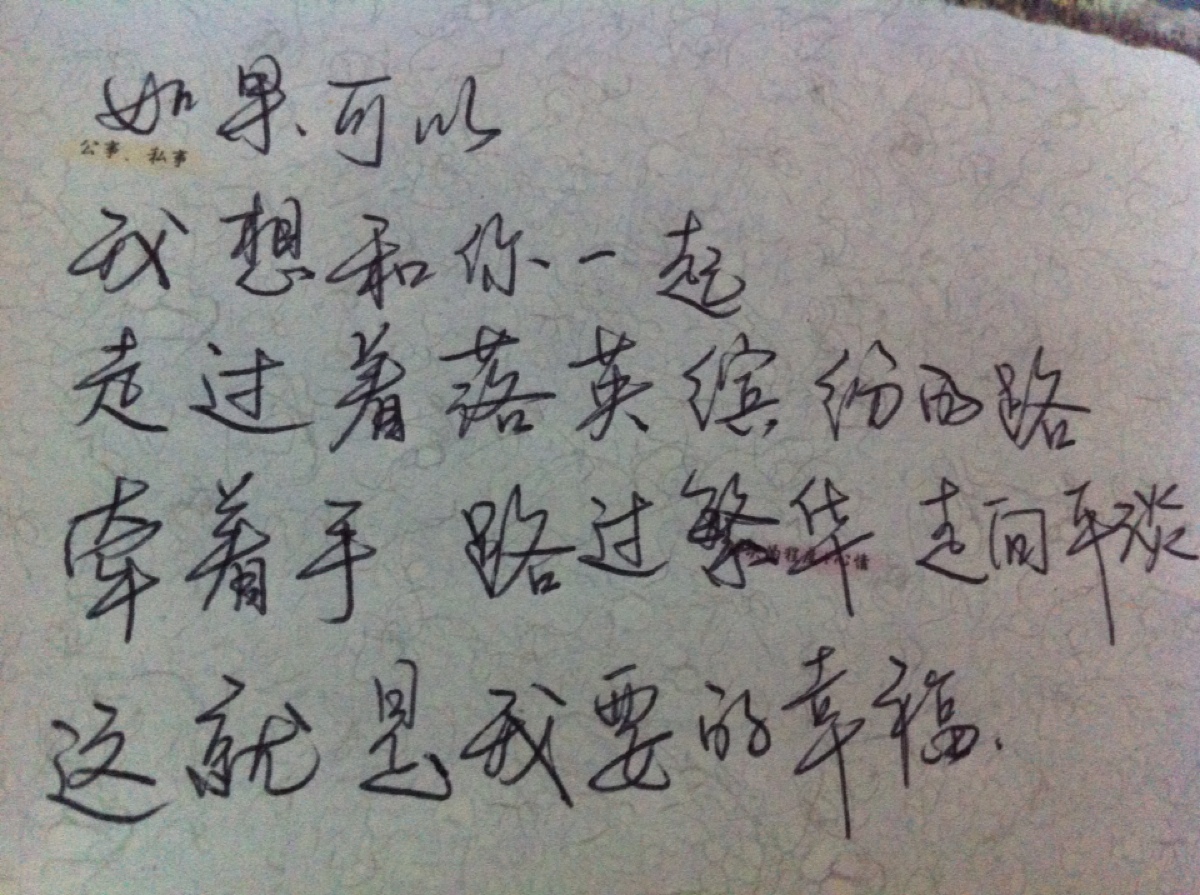 如果可以
公事、私事
我想和你一起
走过着落英缤纷的路
牵着手 路过繁华 走向平谈
心情
这就是我要的幸福.